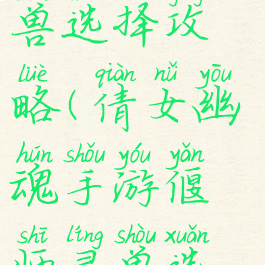 兽选择攻
lüè qiàn nǚ yōu
略(倩女幽
hún shǒu yóu yǎn
魂手游偃
shī líng shòu xuǎn
师灵兽选